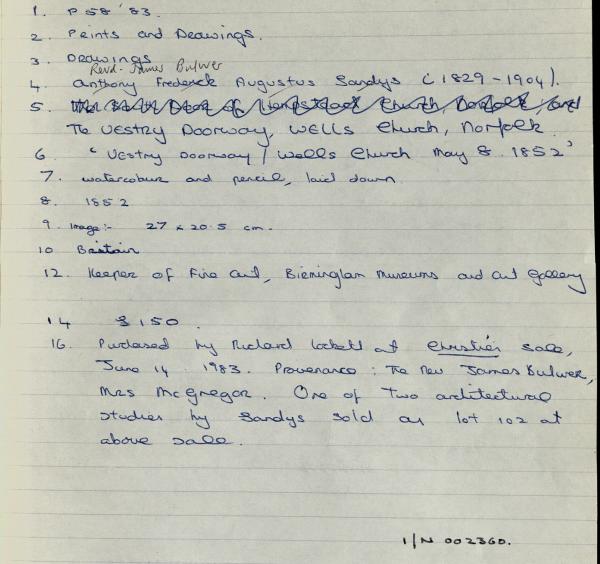 1. P58'83.
2. Prints and Drawings.
3. Drawings
Revd. James Bulwer
4. Anthony Frederick Augustus Sandys (1829-1904).
5. The South Door of Hempstead Church, Norfolk, and
The Vestry Doorway, Wells Church, Norfolk
6. 'Vestry Doorway / Wells Church May 8. 1852'
7. watercolour and pencil, laid down
8. 1852
9. Image:- 27 x 20.5 cm.
10 Britain
12. Keeper of Fine Art, Birmingham Museums and Art Gallery
14 £150.
16. Purchased by Richard Lockett at Christie's sale,
June 14 1983. Provenance: The Rev James Bulwer,
Mrs McGregor. One of two architectural
studies by Sandys sold as lot 102 at
above sale.
I/N 002360.